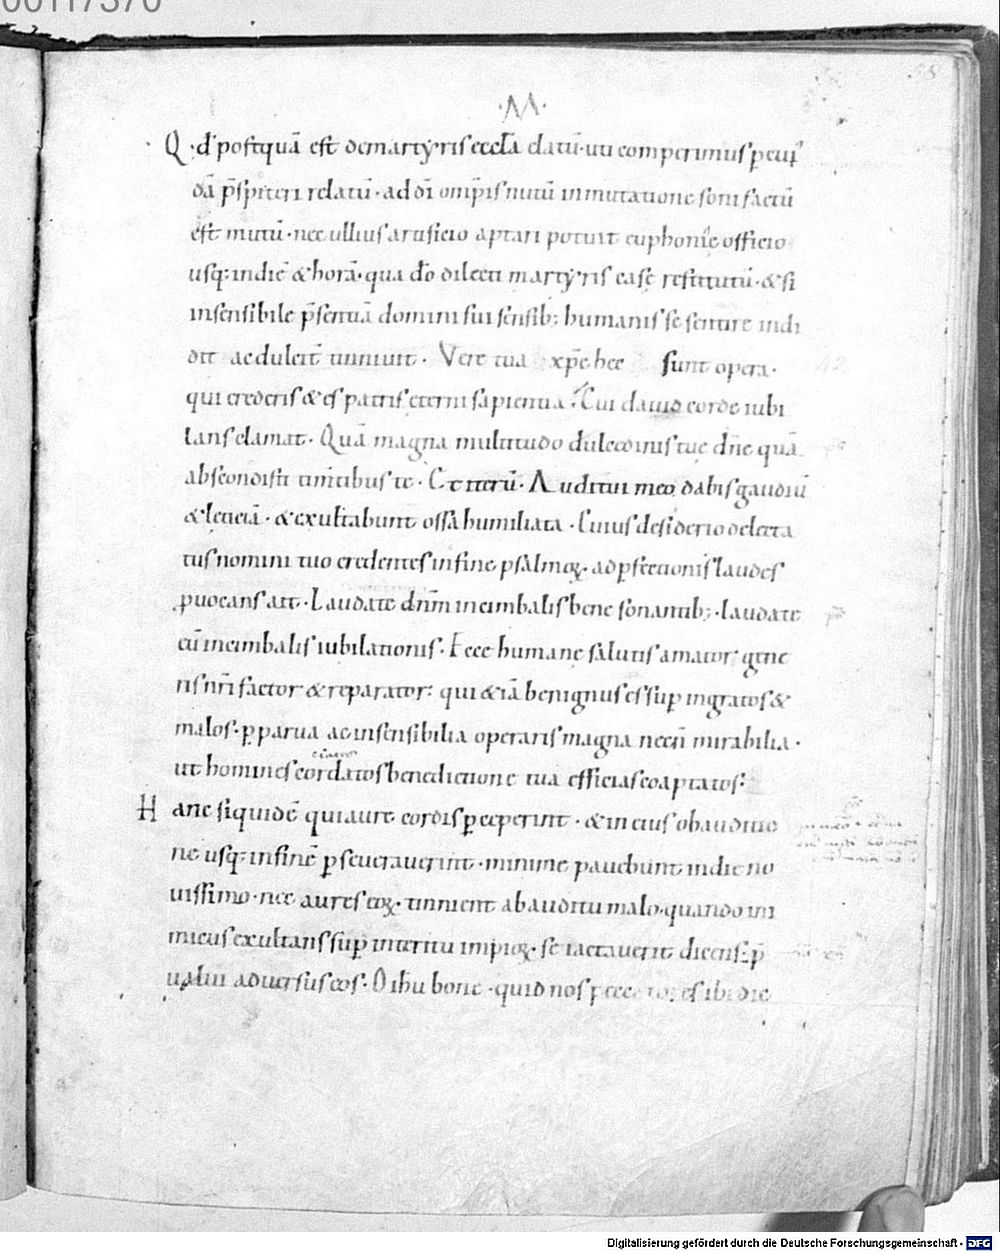 00117370
58
·M·
Q·d postquā est demartyris eccl̄a datū· uti comperimus p cuiꝰ
dā p̄spiteri relatū· ad dī omp̄is nutū inmutatione soni factū
est mutū· nec ullius artificio aptari potuit euphonię officio
usq; in diē & horā· qua dō dilecti martyris casę restitutū· & si
insensibile p̄sentiā domini sui sensib; humanis se sentire indi
dit ac dulcit̄ tinniuit· Vere tua xp̄e hec sunt opera·
qui crederis & es patris eterni sapientia· Cui dauid corde iubi
lans clamat· Quā magna multitudo dulcedinis tuę dn̄e quā
abscondisti timentibus te· Et iterū· Auditui meo dabis gaudiū
& leticiā· & exultabunt ossa humiliata· Cuius desiderio delecta
tus nomini tuo credentes in fine psalmoꝝ· ad p̄fectionis laudes
ꝓuocans ait· Laudate dnm̄ in cimbalis bene sonantib; · laudate
eū in cimbalis iubilationis· Ecce humanę salutis amator· gene
ris nr̄i factor & reparator· qui & iā benignus es sup ingratos &
malos· p parua ac insensibilia operaris magna necn̄ mirabilia·
ut homines cordatos benedictione tua efficias coaptatos:
Hanc siquidē qui aure cordis p̄ceperint· & in eius obauditio
ne usq; in finē p̄seuerauerint· minime pauebunt in die no
uissimo· nec aures eoꝝ· tinnient ab auditu malo· quando ini
micus exultans sup interitu impioꝝ· se iactauerit dicens: p̄
ualui aduersus eos· O ihu bone· quid nos peccatores ibi die
Digitalisierung gefördert durch die Deutsche Forschungsgemeinschaft - DFG